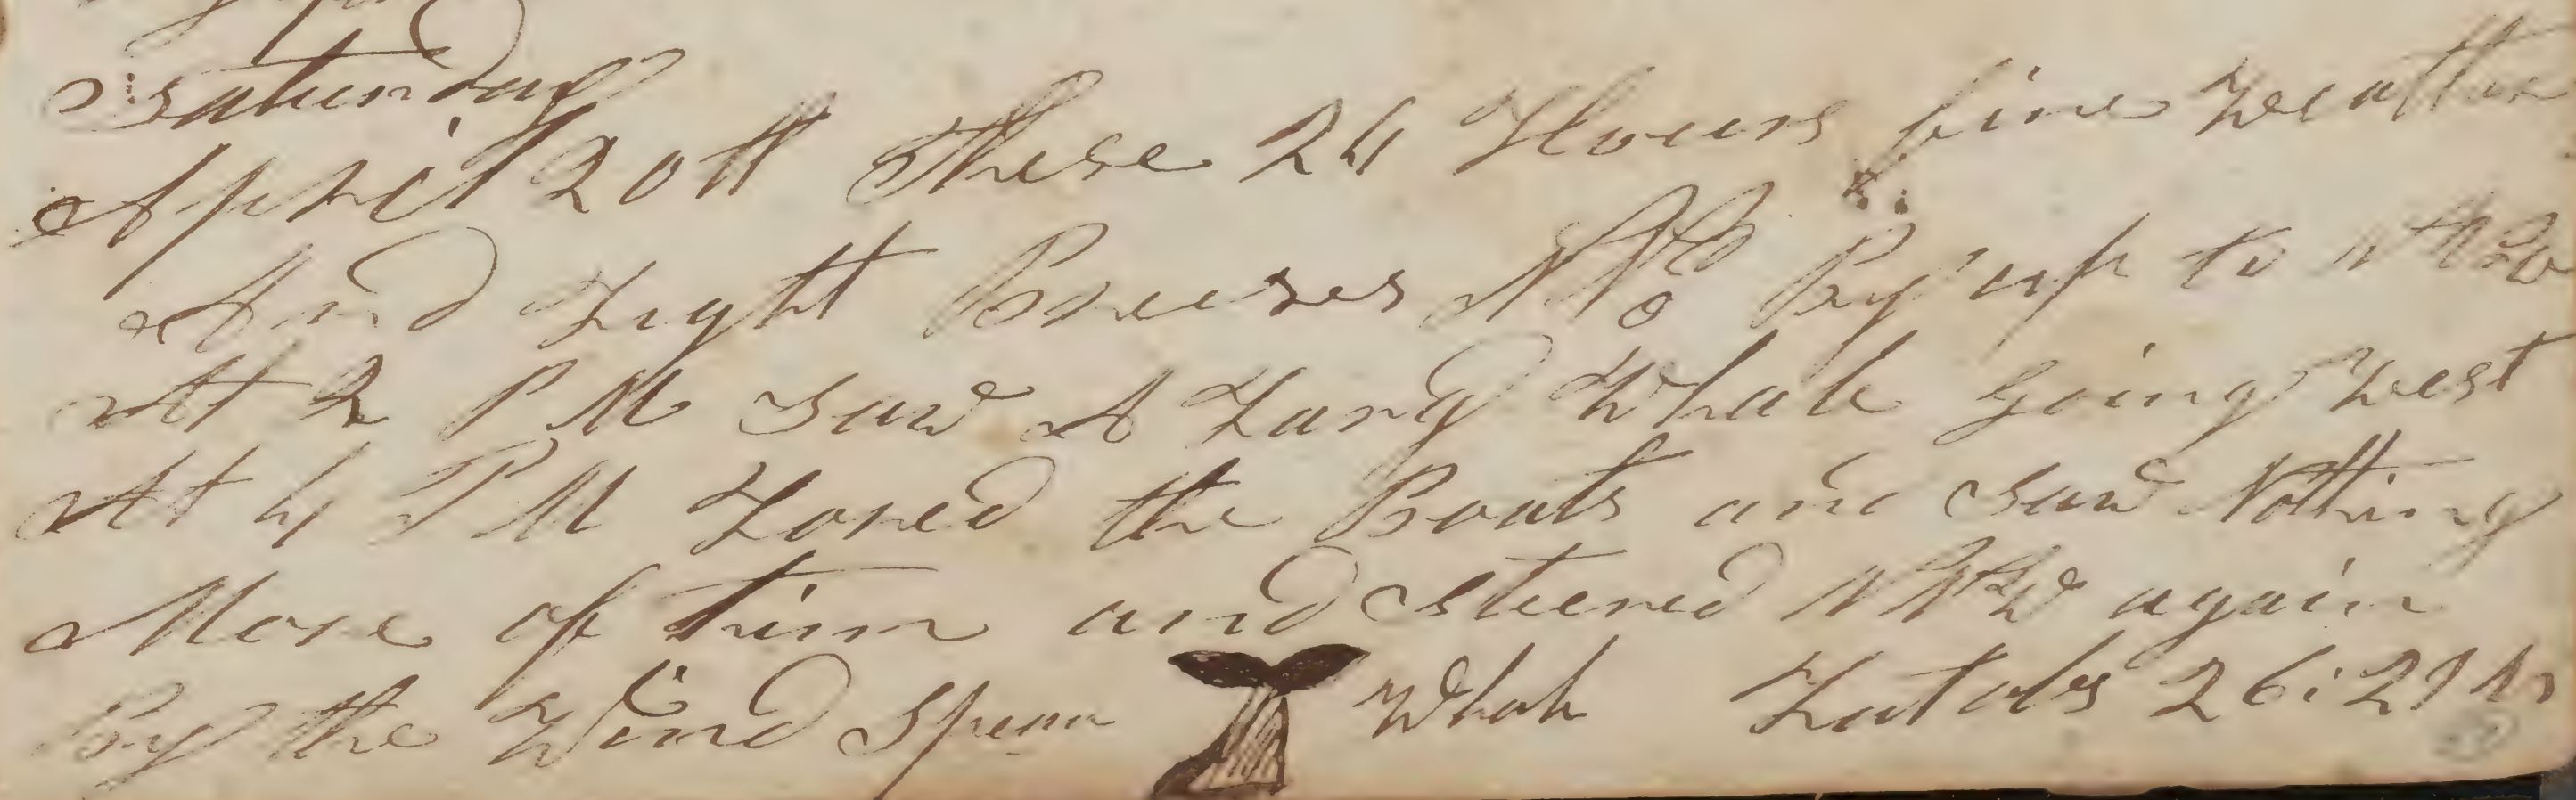 Saturday
April 20th These 24 Hours fine Weather
And Light Breeses NNE By up to NNW
At 2 PM Saw A Larg Whale Going West
At 4 PM Lored the Boats and Saw Nothing
More of him and Steered NNW again
By the Wind Sperm Whale Lat obs 26:29 N